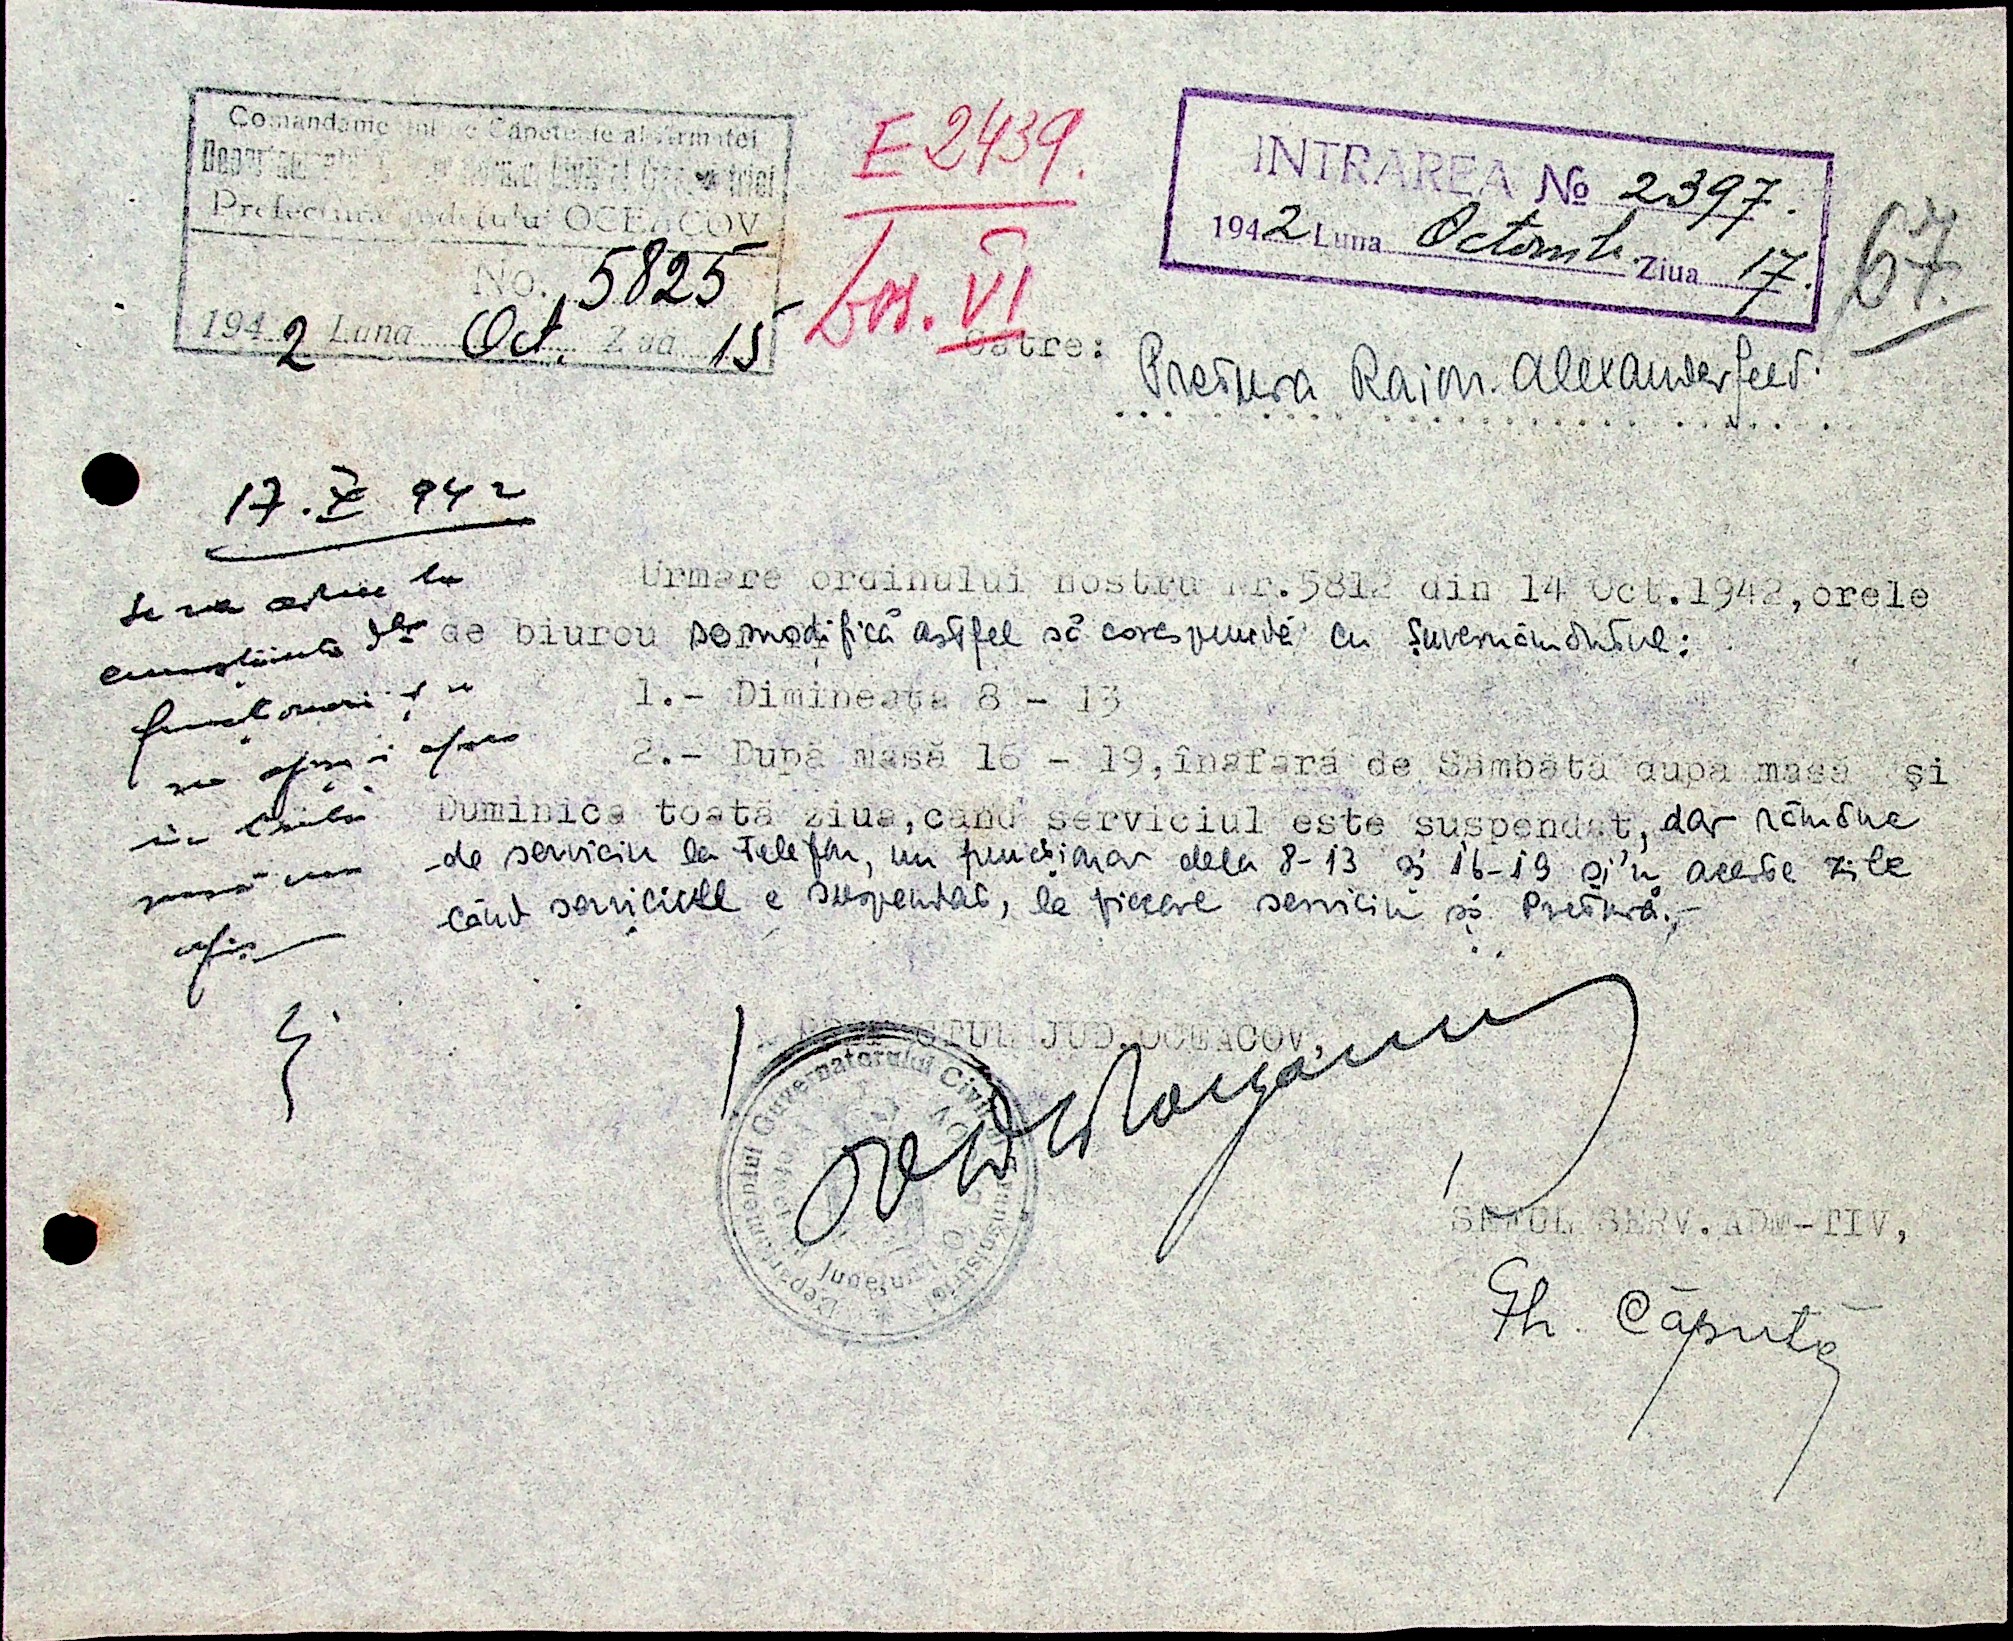 Comandamentul de Căpetenie al Armatei
Prefectura județului OCEACOV
No. 5825
1942 Luna Oct. Ziua 15
E 2439.
Dos. VI
INTRAREA No 2397.
1942 Luna Octomb. Ziua 17.
67.
Către:
Pretura Raion. Alexanderfeld.
17.X 942
Se va aduce la
cunoștința
funcționari
afiș
Urmare ordinului nostru Nr.5812 din 14 Oct.1942, orele
de biurou se modifică astfel să corespundă cu Guvernământul:
1.- Dimineața 8 - 13
2.- După masă 16 - 19, înafară de Sâmbătă după masă și
Duminica toată ziua, când serviciul este suspendat, dar rămâne
de serviciu la Telefon, un funcționar dela 8-13 și 16-19 și'n aceste zile
când serviciul e suspendat, la fiecare serviciu și Pretură.-
PREFECTUL JUD. OCEACOV,
Departamentul Guvernatorului Civil al Transnistriei
ȘEFUL SERV. ADM-TIV,
Gh. Căpută